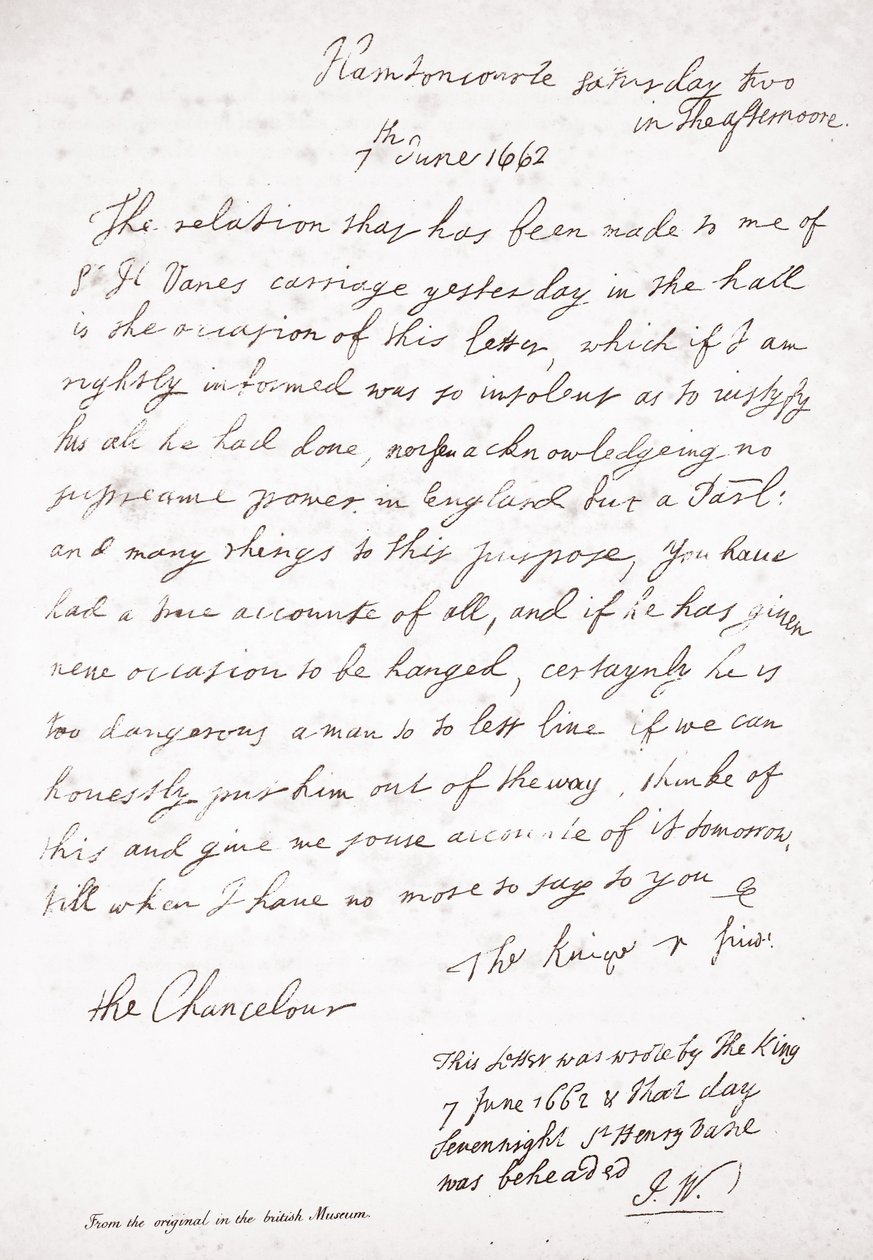 Hamtoncourte saturday two
in The afternoone.
7th June 1662
The relation that has been made to me of
Sr H Vanes carriage yesterday in the hall
is the occasion of this letter, which if I am
rightly informed was so insolent as to iustify
all he had done, acknowledgeing no
supreame power in England but a Parl:
and many things to this purpose, You have
had a true accounte of all, and if he has given
new occasion to be hanged, certaynly he is
too dangerous a man to lett live if we can
honestly put him out of the way, thinke of
this and give me some accounte of it tomorrow,
till when I have no more to say to you
The
the Chancelour
This Letter was wrote by The King
7 June 1662 & that day
Sevennight Sr Henry Vane
was beheaded
J. W.
From the original in the british Museum.